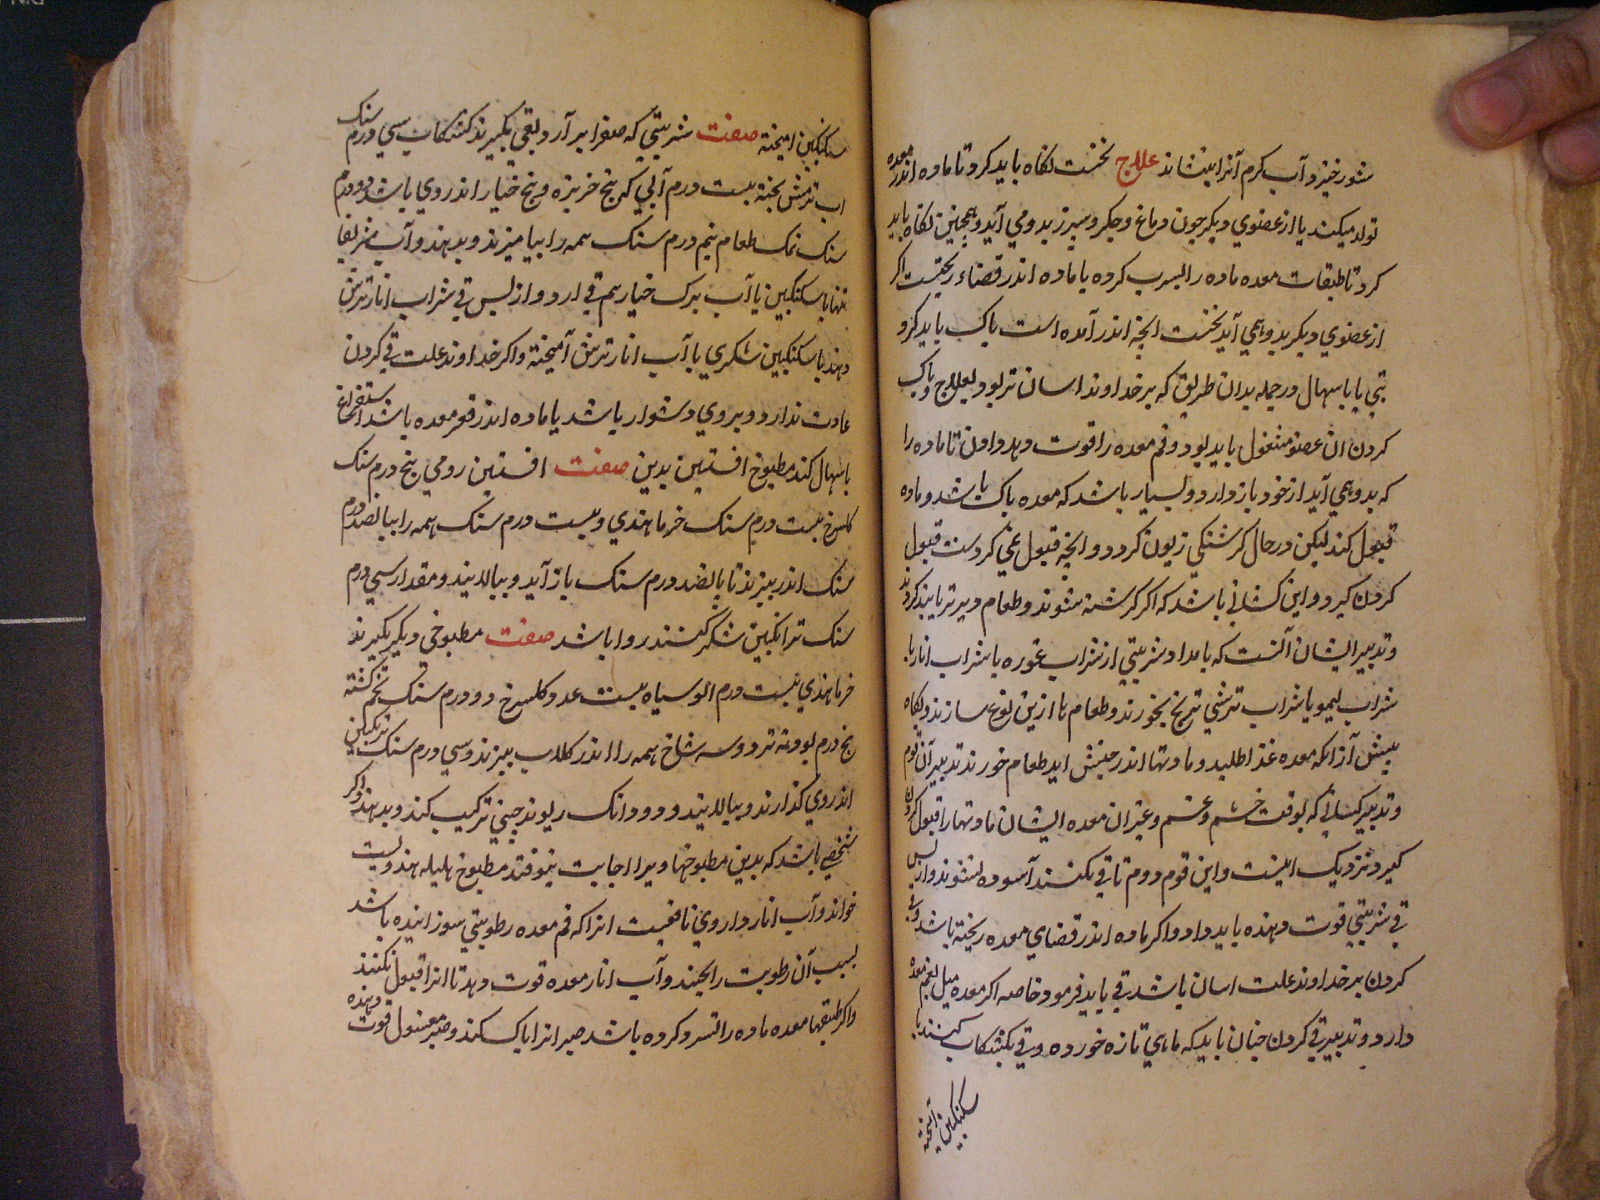 شور خیزد و آب کرم آنرا بنشاند علاج نخست نکاه باید کرد تا ماده اندر معده
تولد میکند یا از عضوي دیکر چون دماغ و جکر و سپرز بدو می آید و همچنین نکاه باید
کرد تا طبقات معده ماده را بسرب کرده یا ماده اندر فضاء ریختست اکر
از عضوي دیکر بدو همي آید نخست انچه اندر آمده است پاک باید کرد
بقي یا باسهال در جمله بدان طریق که بر خداوند اسان تر بود بعلاج و پاک
کردن ان عضو مشغول باید بود و فم معده را قوت دهد و اون تا ماده را
که بدو همي آید از خود باز دارد و بسیار باشد که معده پاک باشد و ماده
قبول کند لیکن در حال کرسنکي زبون کردد و انچه قبول نمی کردست قبول
کردن کیرد و این کساني باشد که اکر کرسنه شوند و طعام دیرتر یابند
و تدبیر ایشان آنست که بامداد شربتي از شراب غوره یا شراب انار یا
شراب لیمو یا شراب ترشي ترنج بخورند و طعام ها ازین نوع سازند و نکاه
پیش از انکه معده غذا طلبد و مادتها اندر جنبش اید طعام خورند تدبیر آن قوم
و تدبیر کساني که بوقت خشم و غم و غیر ان معده ایشان مادتها را قبول کردن
کیرد نزدیک اینست و این قوم دوم تا قي نکنند آسوده نشوند و از پس
قي شربتي قوت دهنده باید داد و اکر ماده اندر فضاي معده ریخته باشد و قي
کردن بر خداوند علت اسان باشد قي باید فرمود خاصه اکر معده میل بفم معده
دارد و تدبیر قي کردن چنان باید که ماهي تازه خورده و قي بکشکاب کنند با
سکنکبین آمیخته
سکنکبین امیخته صفت شربتي که صفرا بر آرد بقي بکیرند کشکاب سي درم سنک
اب ترمش پخته بیست درم آبي که بیخ خربزه و بیخ خیار اندر وي باشد دو درم
سنک نمک طعام نیم درم سنک همه را بیامیزند و بدهند و آب
تنها با سکنکبین یا آب برک خیار هم قي ارد و از پس قي شراب انار ترش
دهند یا سکنکبین شکري یا آب انار ترش آمیخته و اکر خداوند علت قي کردن
عادت ندارد و بر وي دشوار باشد یا ماده اندر قعر معده باشد استفراغ
باسهال کند مطبوخ افسنتین بدین صفت افسنتین رومي پنج درم سنک
کلسرخ بیست درم سنک خرما هندي بیست درم سنک همه را بپانصد درم
سنک اندر بپزند تا بپانصد درم سنک باز آید و بپالایند و مقدار سي درم
سنک ترانکبین شکر کنند روا باشد صفت مطبوخي دیکر بکیرند
خرما هندي بیست درم الو سیاه بیست عدد کلسرخ دو درم سنک تخم کشنه
پنج درم پودنه تر دو سه شاخ همه را اندر کلاب بپزند و سي درم سنک ترنکبین
اندر وي کذارند و بپالایند و دو دانک ریوند چیني ترکیب کند و بدهند و اکر
شخصي باشد که بدین مطبوخها ویرا اجابت نیوفتد مطبوخ هلیله هندویست
خواند و آب انار دارویي نافعست انرا که فم معده رطوبتي سوزاننده باشد
بسبب آن رطوبت را بچیند و آب انار معده قوت دهد تا انرا قبول نکند
و اکر طبقها معده ماده را تشرب کرده باشد صبر انرا پاک کند و صبر مغسول قوت دهنده